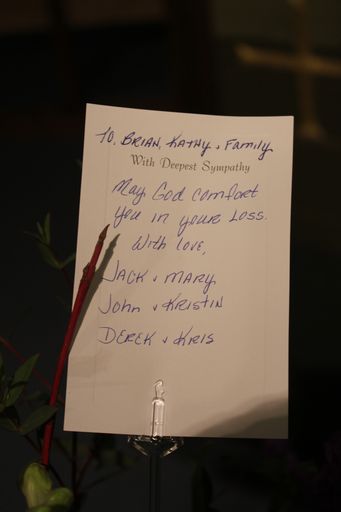 To, Brian, Kathy & Family
With Deepest Sympathy
May God comfort
you in your Loss.
With love,
Jack & Mary
John & Kristin
Derek & Kris